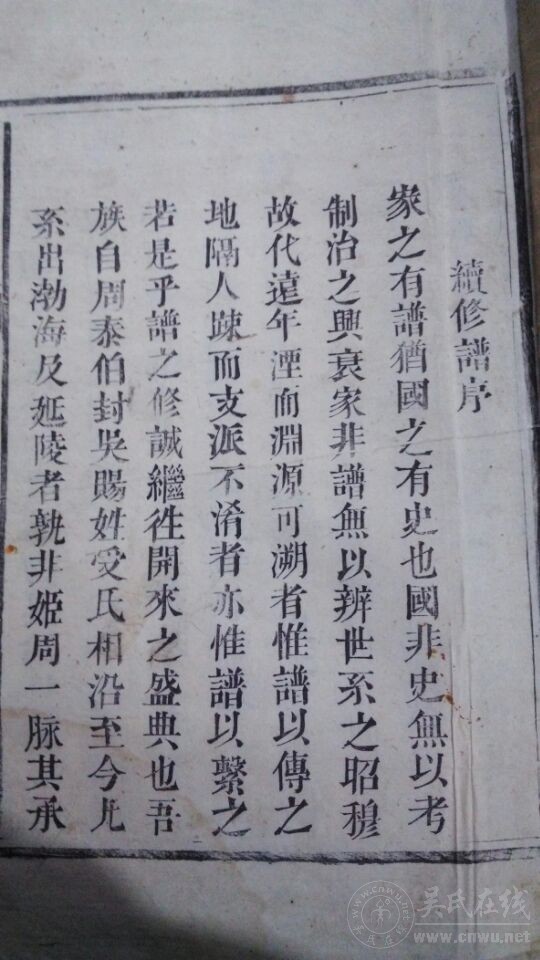 續修譜序
家之有譜猶國之有史也國非史無以考
制治之興衰家非譜無以辨世系之昭穆
故代遠年湮而淵源可溯者惟譜以傳之
地隔人踈而支派不淆者亦惟譜以繫之
若是乎譜之修誠繼徃開來之盛典也吾
族自周泰伯封吳賜姓受氏相沿至今凢
系出渤海及延陵者孰非姬周一脉其承
吴氏在线
www.cnwu.net